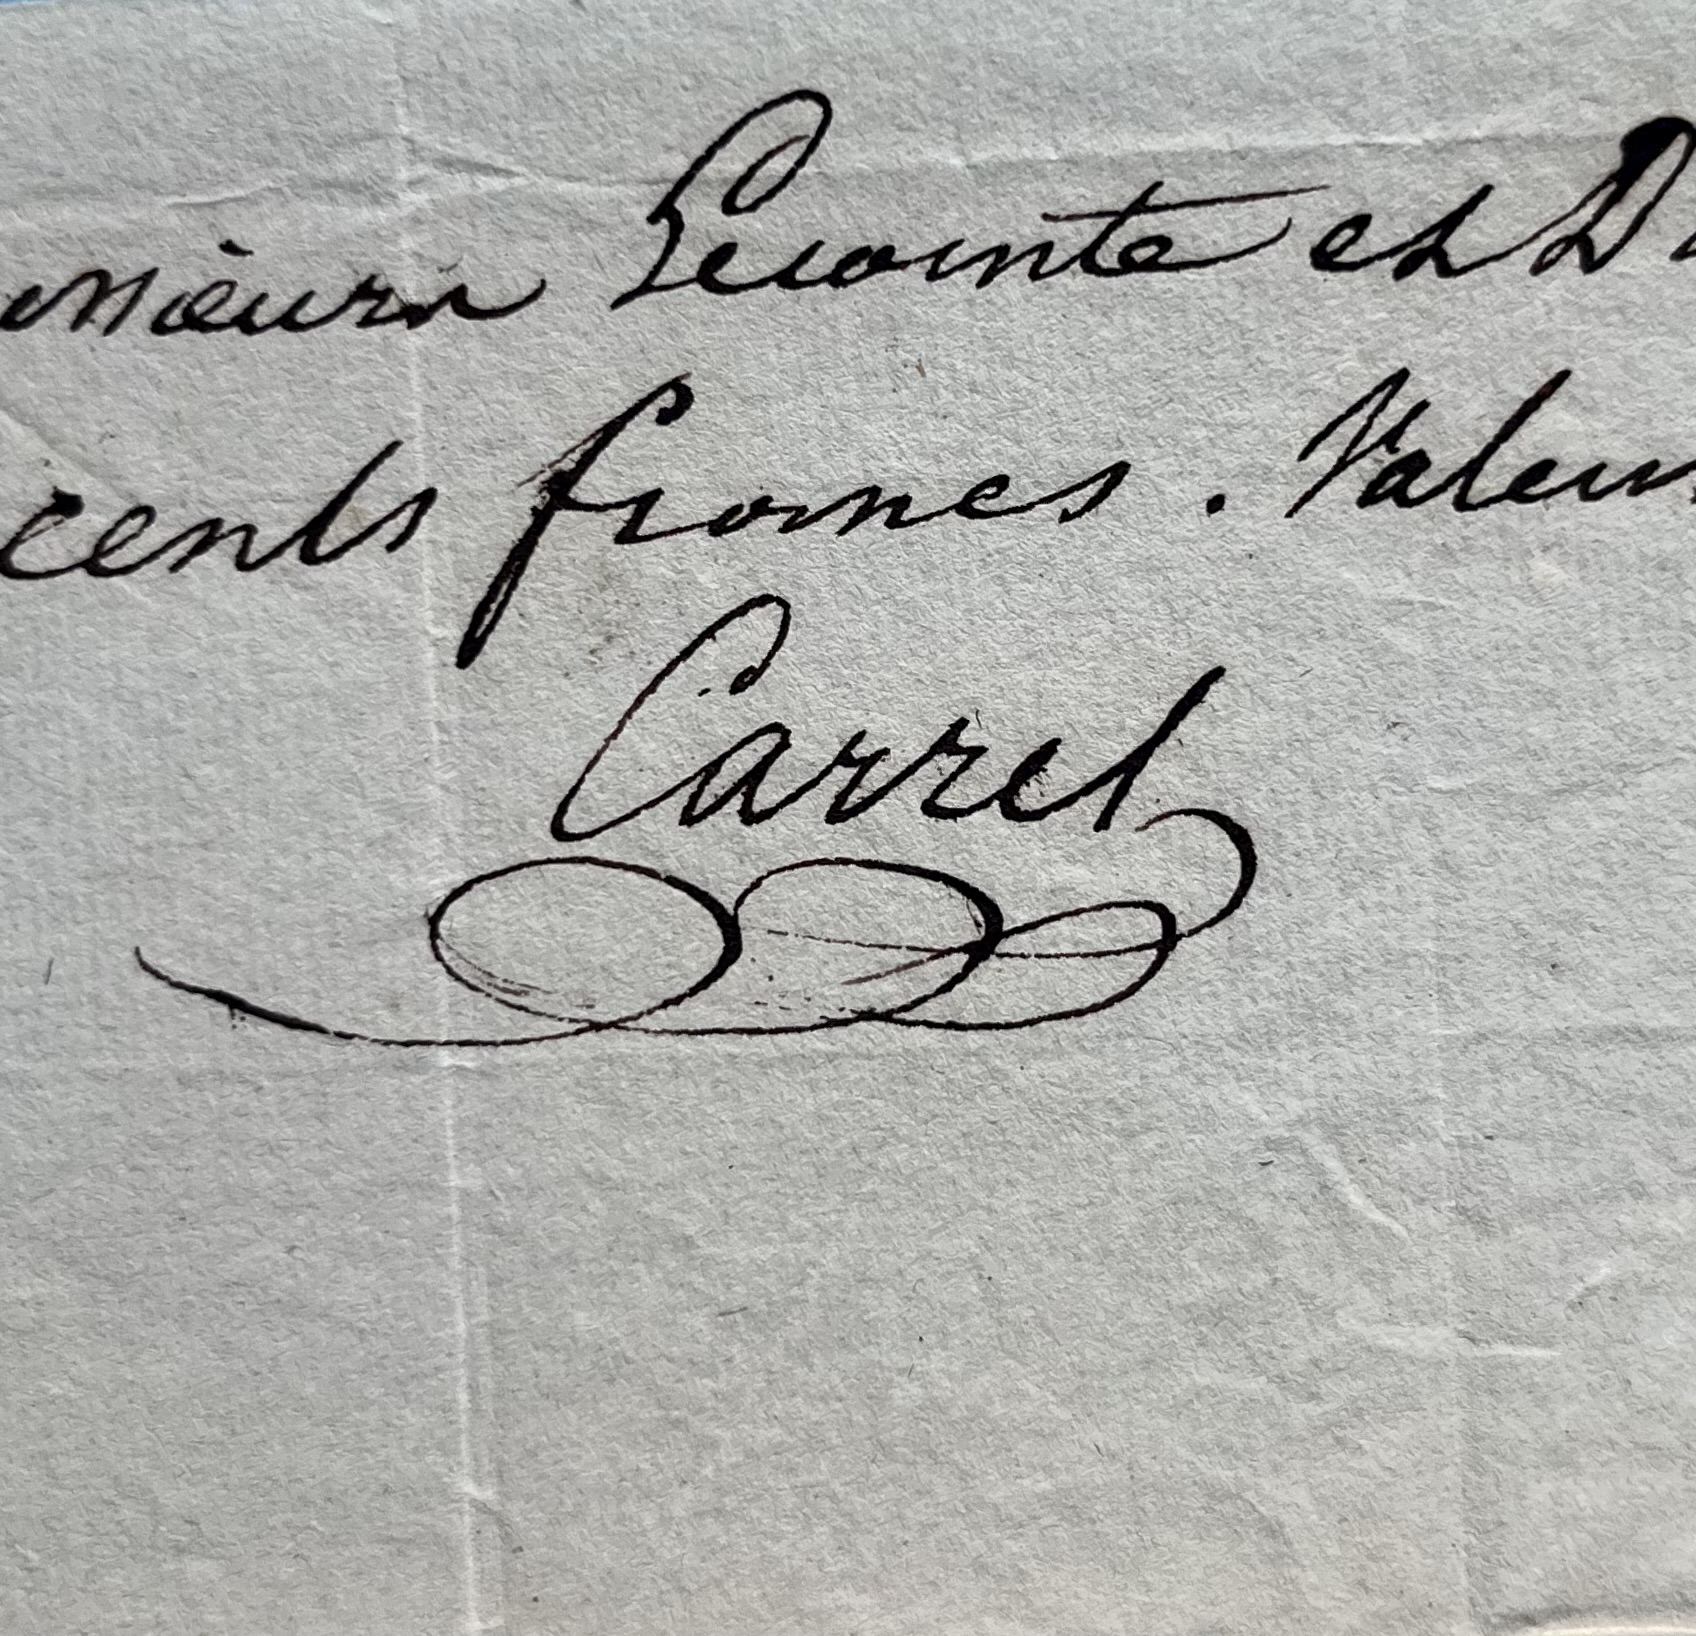 Messieurs Lecointe et D
cents francs. Valeur
Carrel